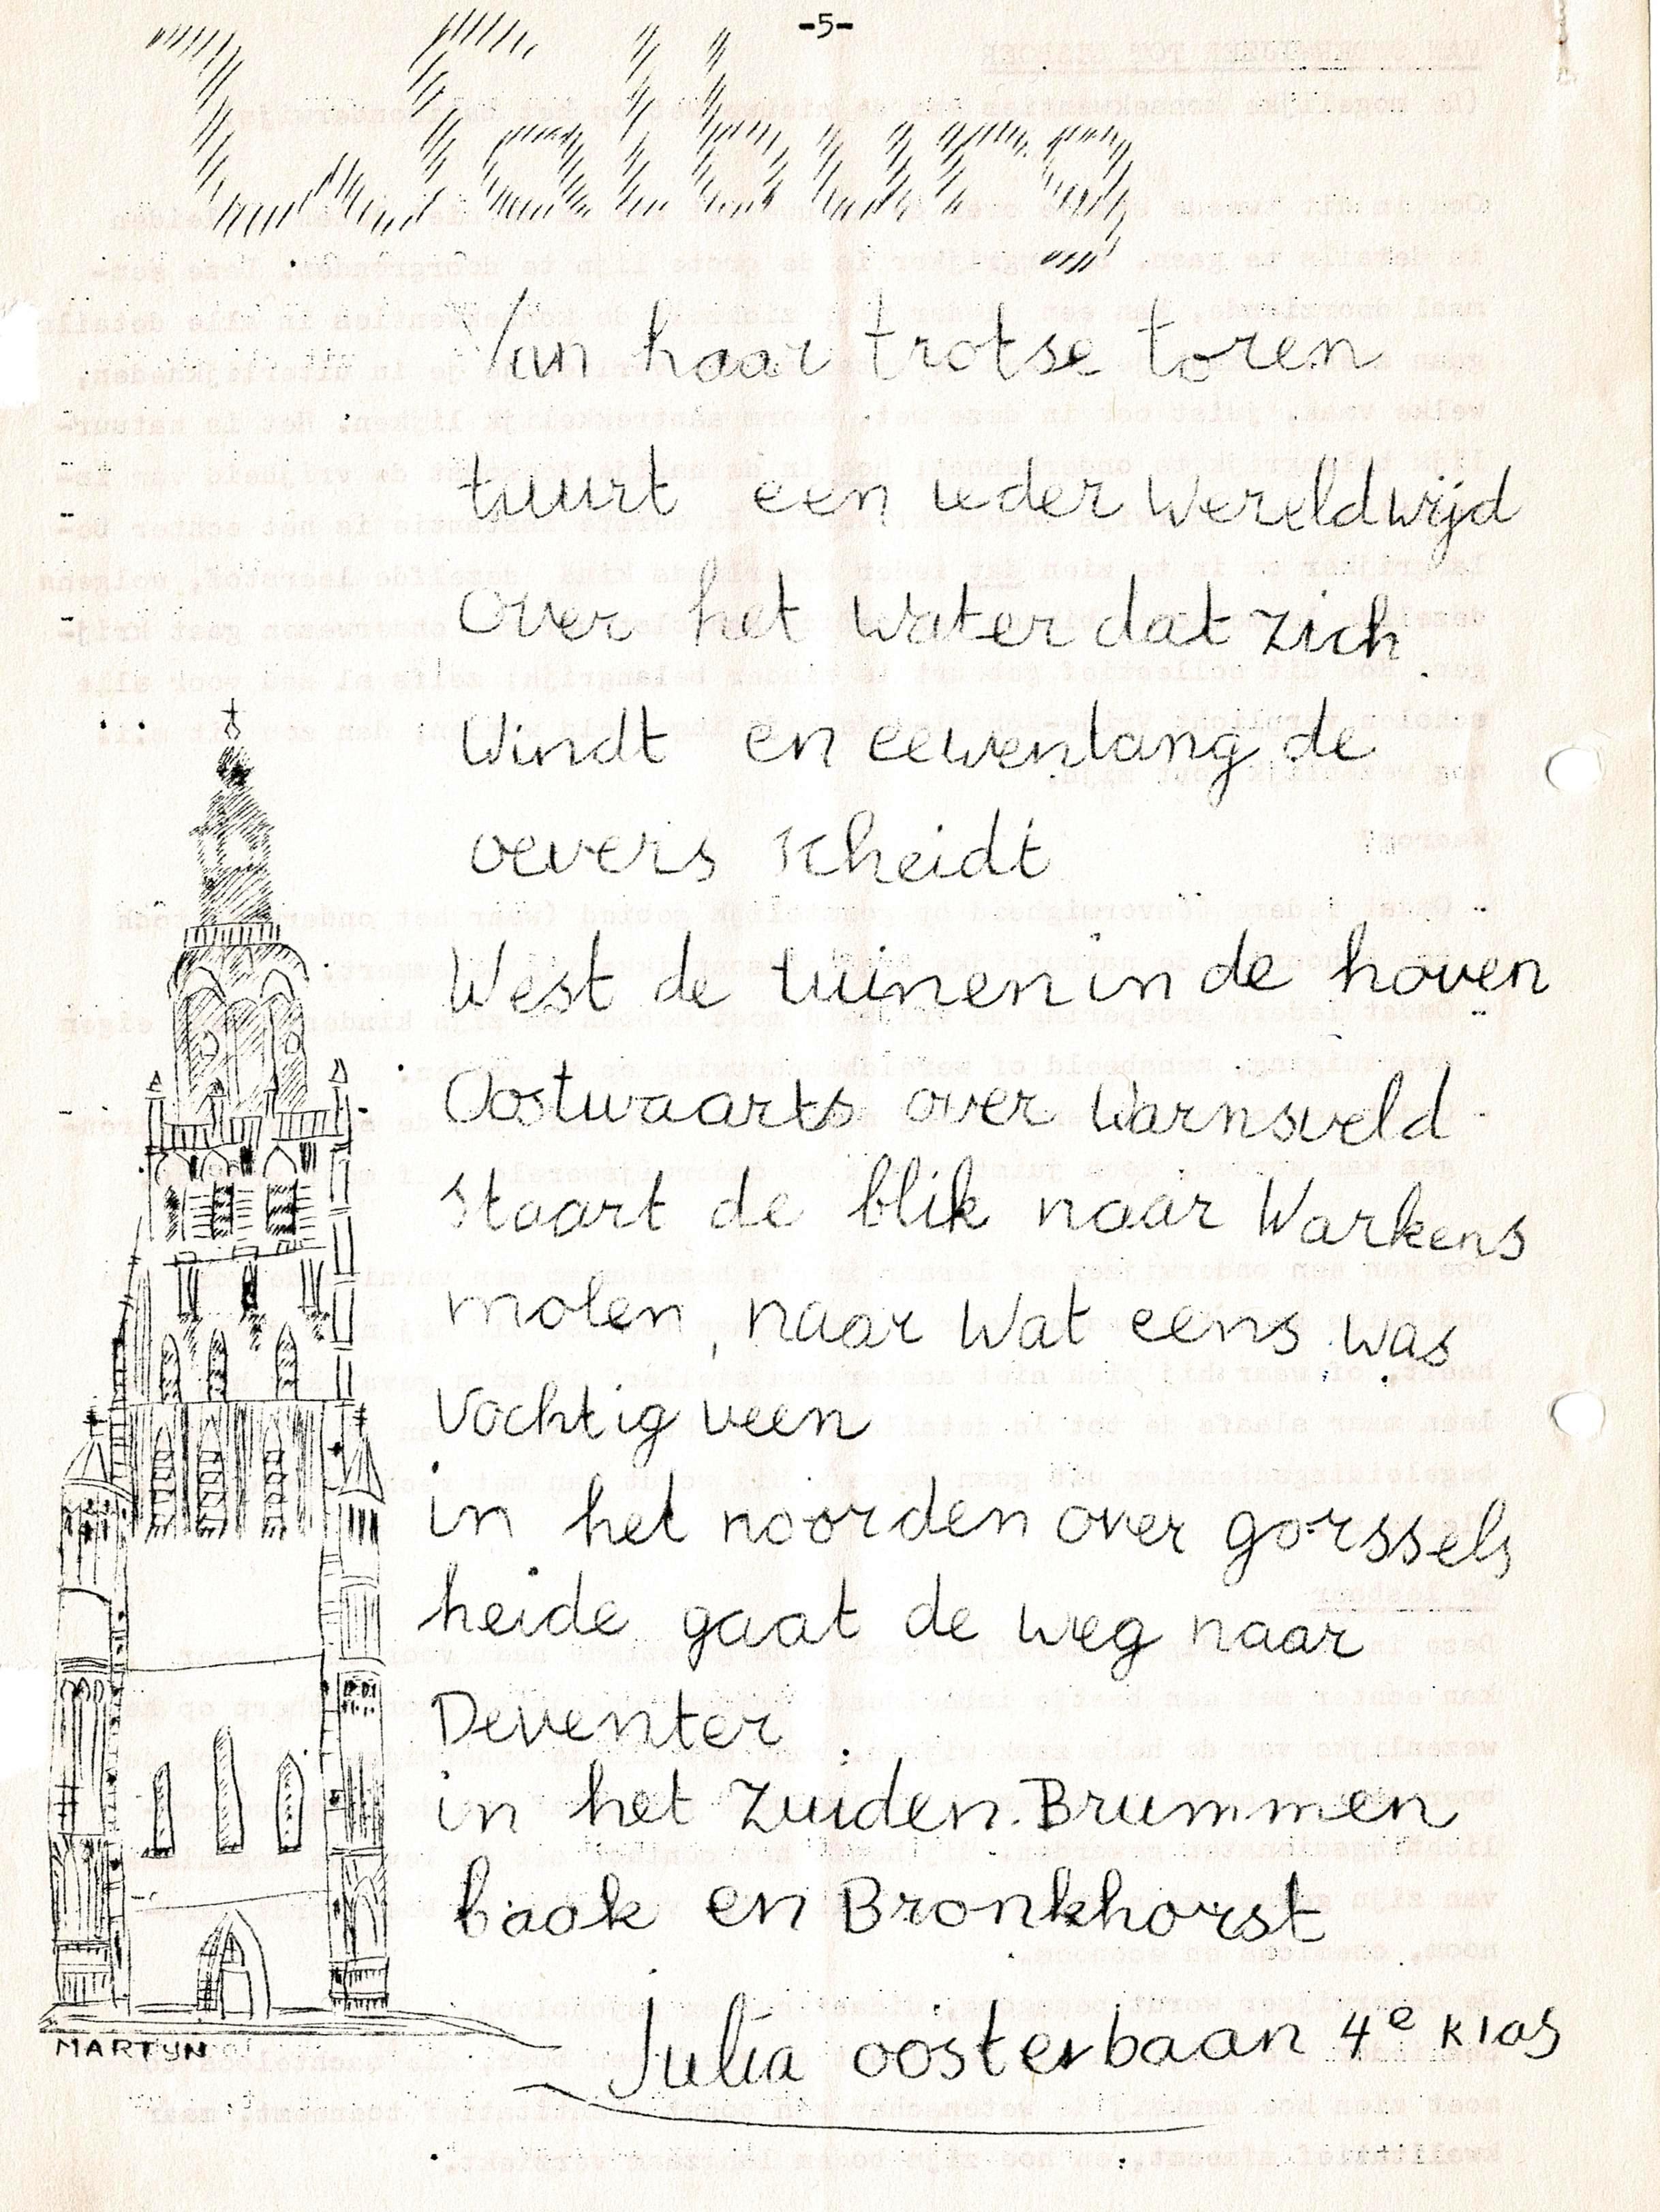 -5-
Walburg
Van haar trotse toren
tuurt een ieder wereldwijd
over het water dat zich
windt en eeuwenlang de
oevers scheidt
West de tuinen in de hoven
Oostwaarts over Warnsveld
staart de blik naar Warkens
molen, naar wat eens was
vochtig veen
in het noorden over gorssels
heide gaat de weg naar
Deventer
in het zuiden Brummen
baak en Bronkhorst
MARTYN
Julia oosterbaan 4e klas